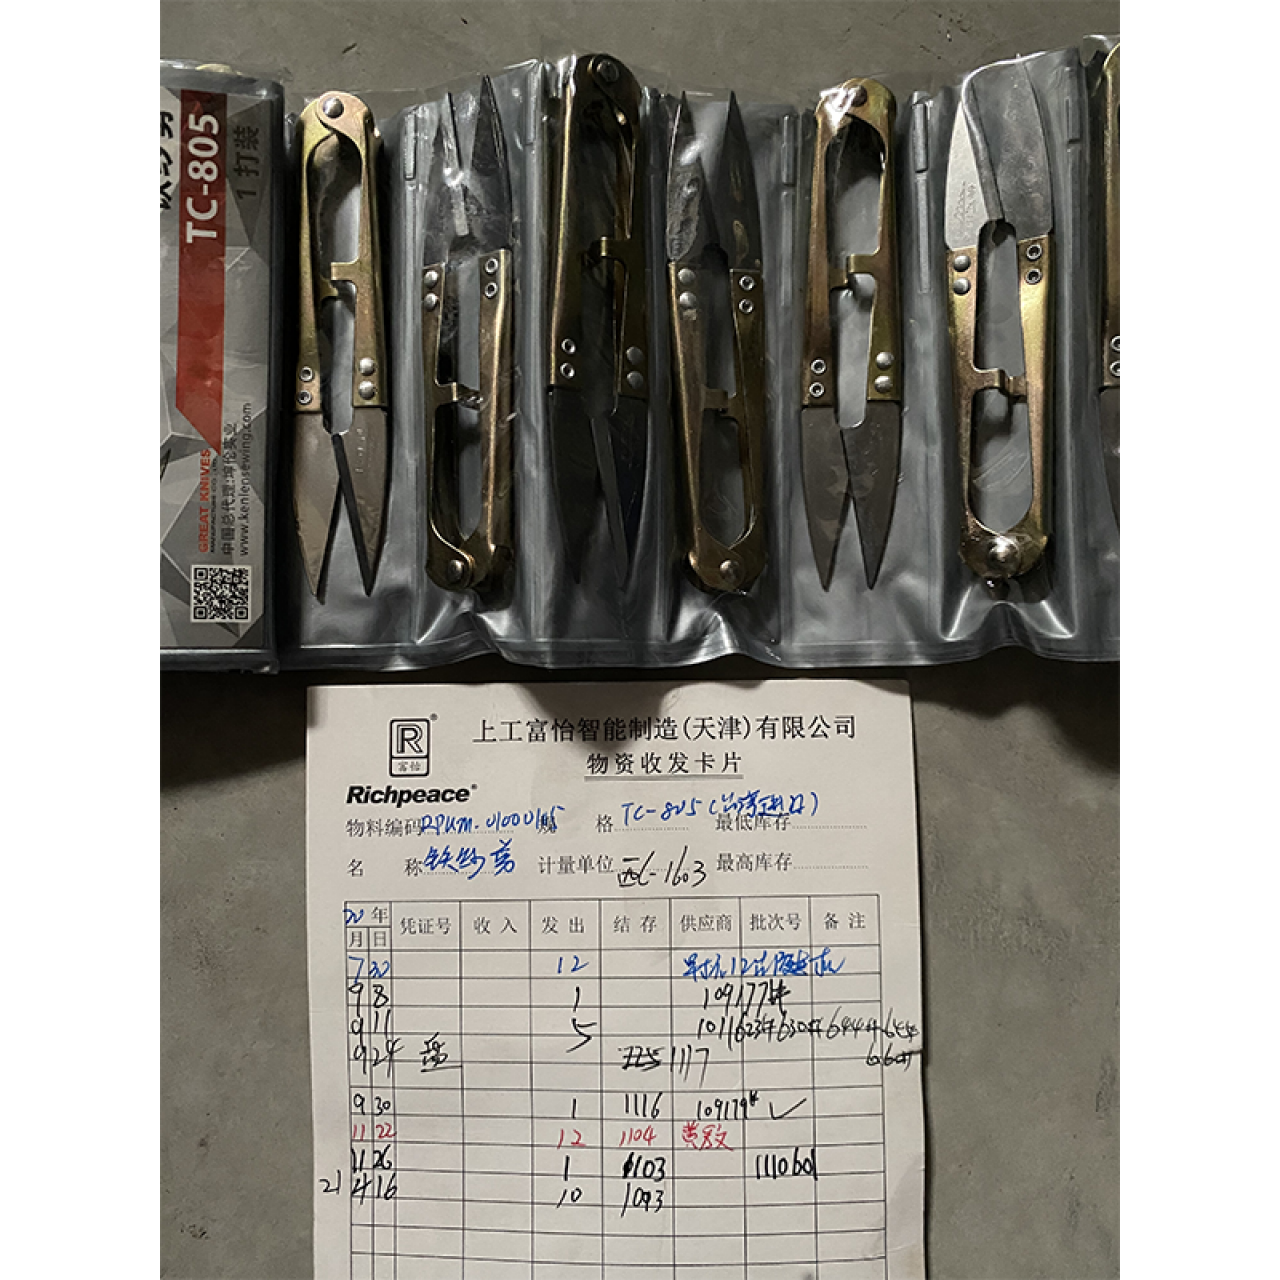 TC-805
1打装
GREAT KNIVES
中国总代理:坤伦实业
www.kenlensewing.com
R
富怡
Richpeace®
上工富怡智能制造(天津)有限公司
物资收发卡片
物料编码 规格 TC-805 最低库存
名称 铁纱剪 计量单位 西-1603 最高库存
20年 凭证号 收入 发出 结存 供应商 批次号 备注
月 日
7 30 12
9 8 1 109177#
9 11 5 1011623# 630# 644# 644
9 24 盘 1117
9 30 1 1116 109179# ✓
11 22 12 1104
11 26 1 1103 1110601
21 4 16 10 1093